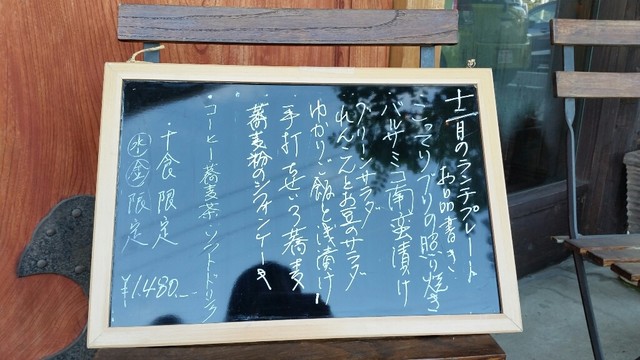 十一月のランチプレート
お品書き
・こってりブリの照り焼き
・バルサミコ南蛮漬け
・グリーンサラダ
・れんこんとお豆のサラダ
・ゆかりご飯と浅漬け
・手打ちせいろ蕎麦
・蕎麦粉のシフォンケーキ
・コーヒー 蕎麦茶・ソフトドリンク
・十食限定
水 金 限定
￥1.480.—